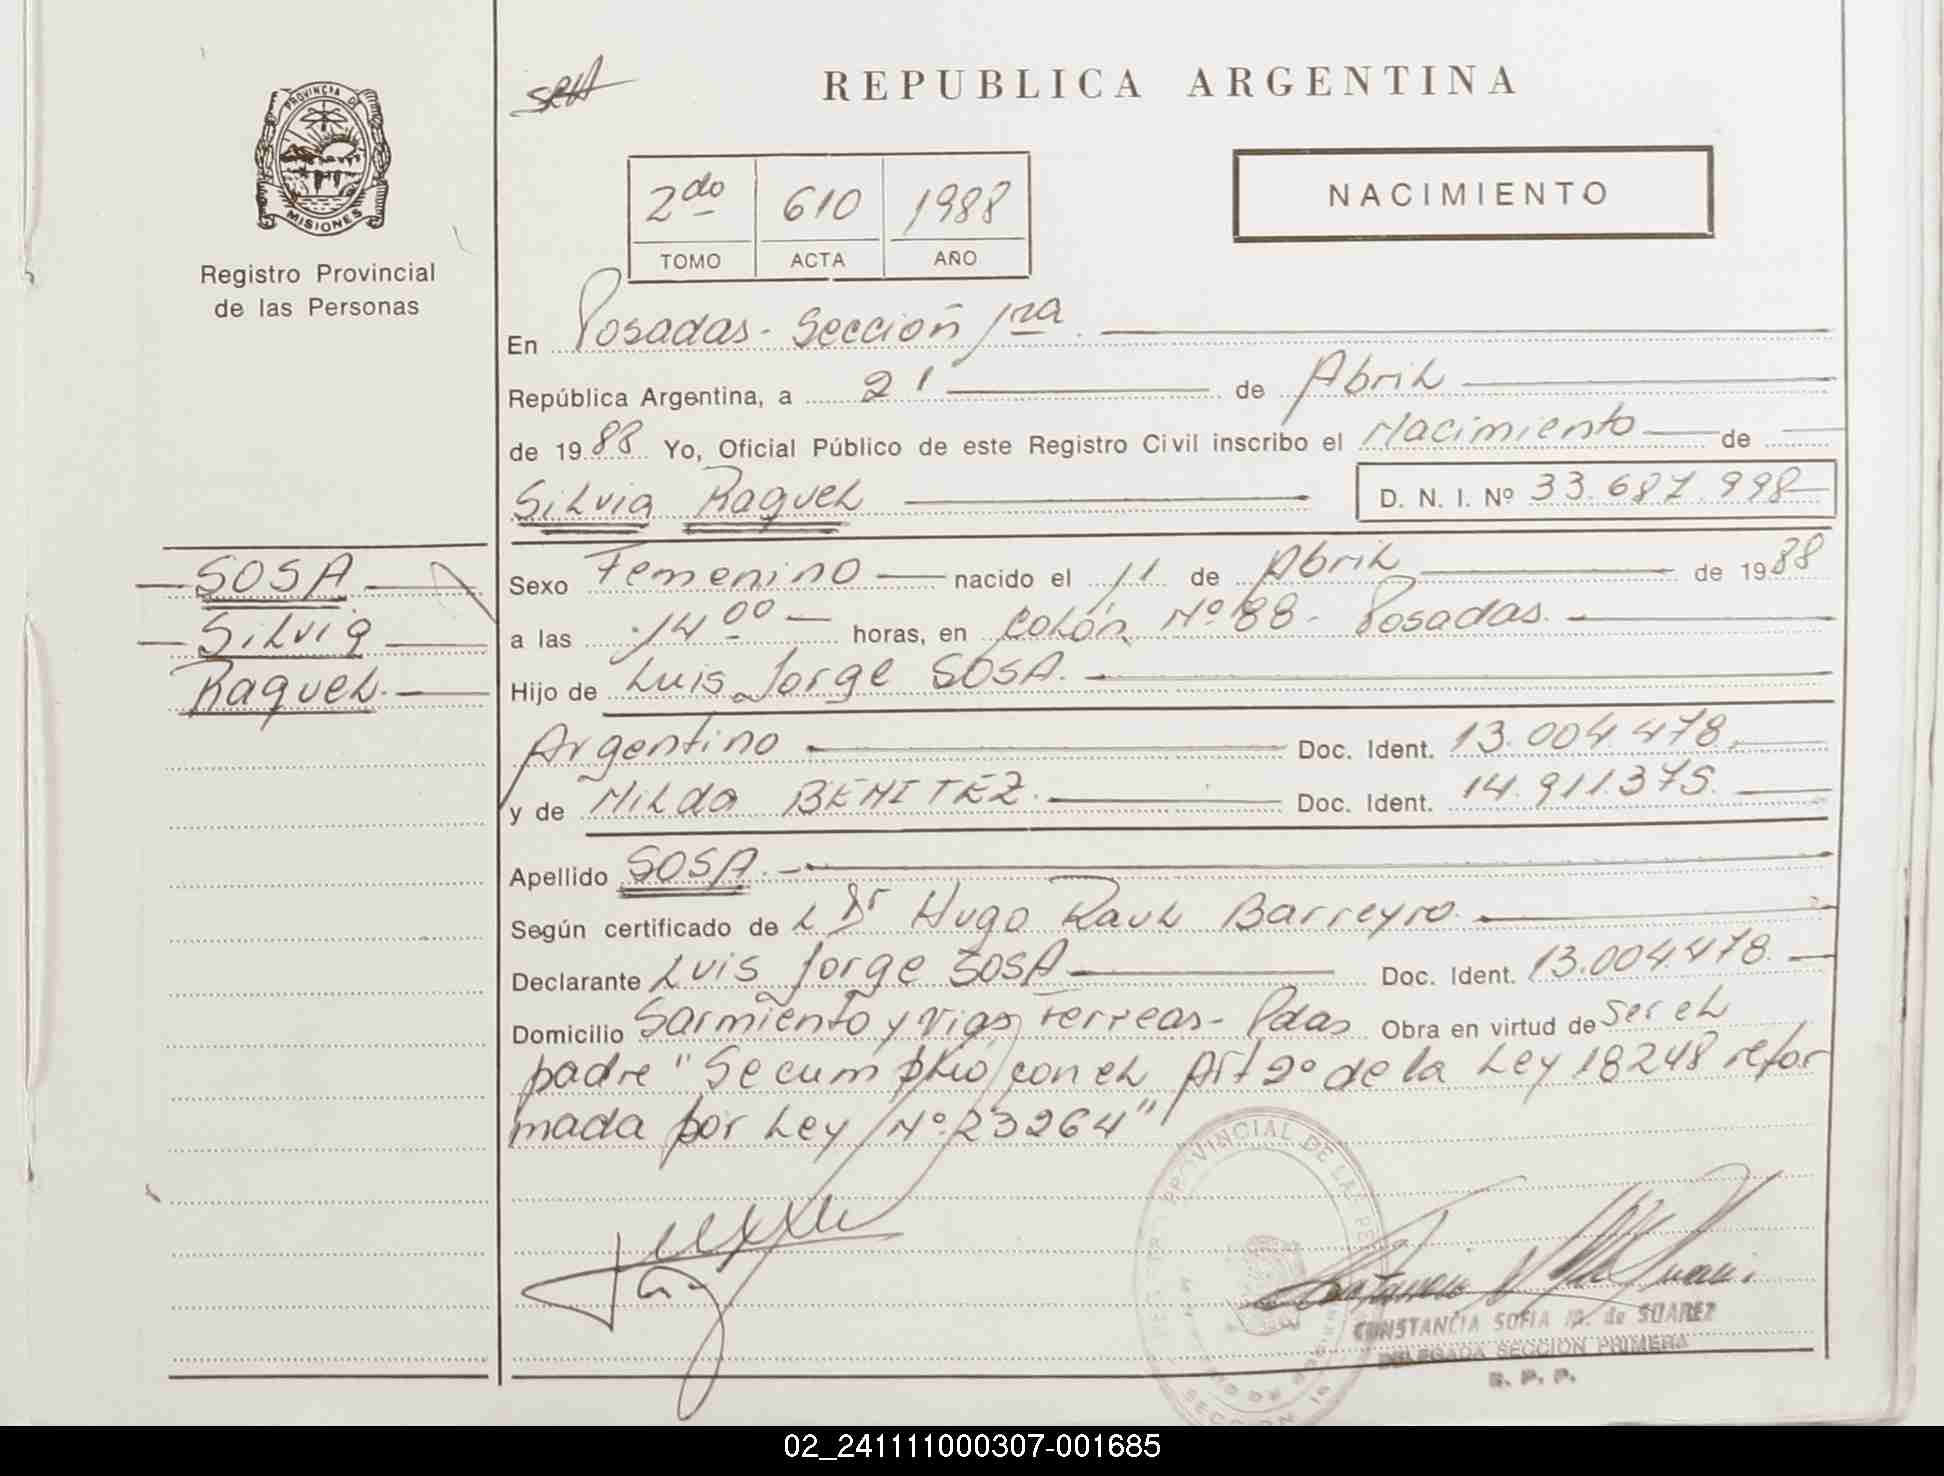 REPUBLICA ARGENTINA
PROVINCIA DE
MISIONES
Registro Provincial
de las Personas
2do 610 1988
TOMO ACTA AÑO
NACIMIENTO
En Posadas - Sección 1ra.
República Argentina, a 21 de Abril
de 1988 Yo, Oficial Público de este Registro Civil inscribo el Nacimiento de
Silvia Raquel D. N. I. Nº 33.687.998
SOSA
Silvia
Raquel.
Sexo Femenino nacido el 11 de Abril de 1988
a las 14 00 horas, en Colón Nº 88 - Posadas.
Hijo de Luis Jorge SOSA.
Argentino Doc. Ident. 13.004.478.
y de Nilda BENITEZ. Doc. Ident. 14.911.375.
Apellido SOSA.
Según certificado de L Dr Hugo Raul Barreyro.
Declarante Luis Jorge SOSA Doc. Ident. 13.004.478.
Domicilio Sarmiento y vias Ferreas - Pdas Obra en virtud de ser el
padre "Se cumplio con el Art 2º de la Ley 18248 refor
mada por Ley Nº 23264"
PROVINCIAL DE LAS
CONSTANCIA SOFIA de SUAREZ
DELEGADA SECCION PRIMERA
R. P. P.
SECCION 1a
02_241111000307-001685